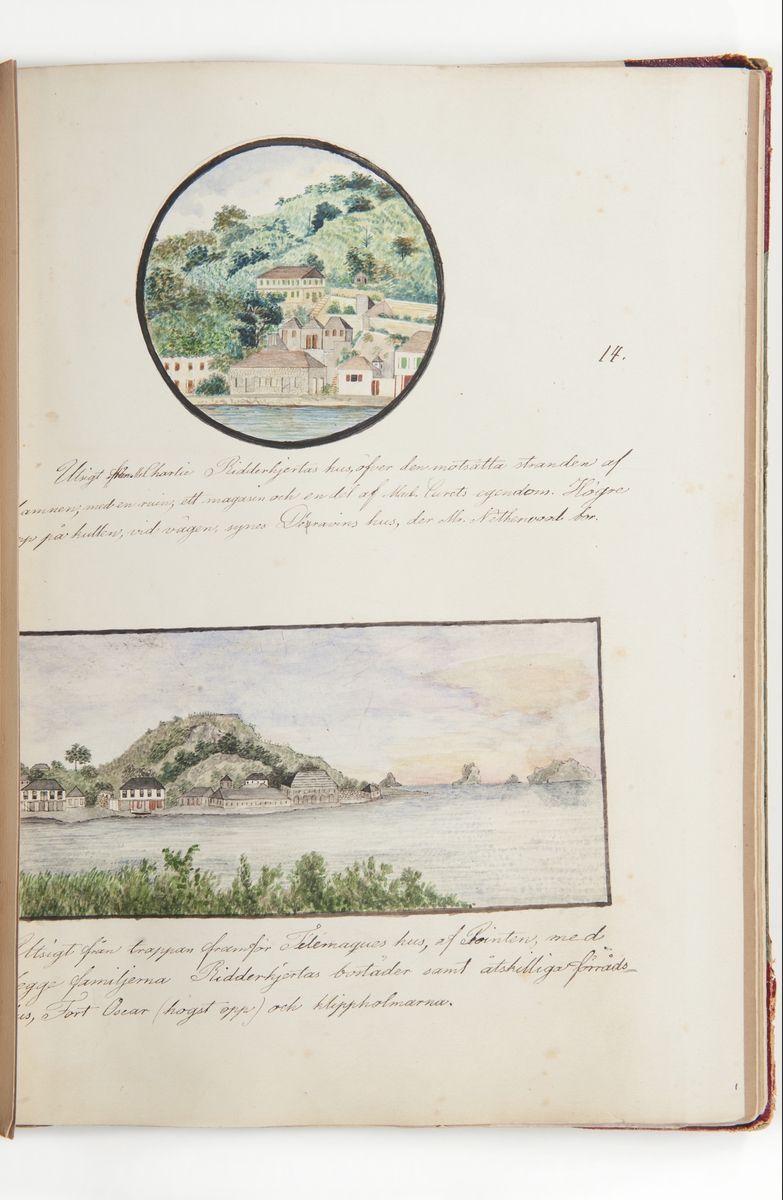 14.
Utsigt från Mll Charlie Ridderhjertas hus, öfver den motsatta stranden af
amnen, med en ruin, ett magasin och en del af Med. Curets egendom. Högre
på kullen, vid vägen, synes Deravins hus, der Mr. Netherwood bor.
Utsigt från trappan framför Télémaques hus, af Pointen, med
egge familjerna Ridderhjertas bostäder samt åtskilliga förråds-
us, Fort Oscar (högst opp) och klippholmarna.